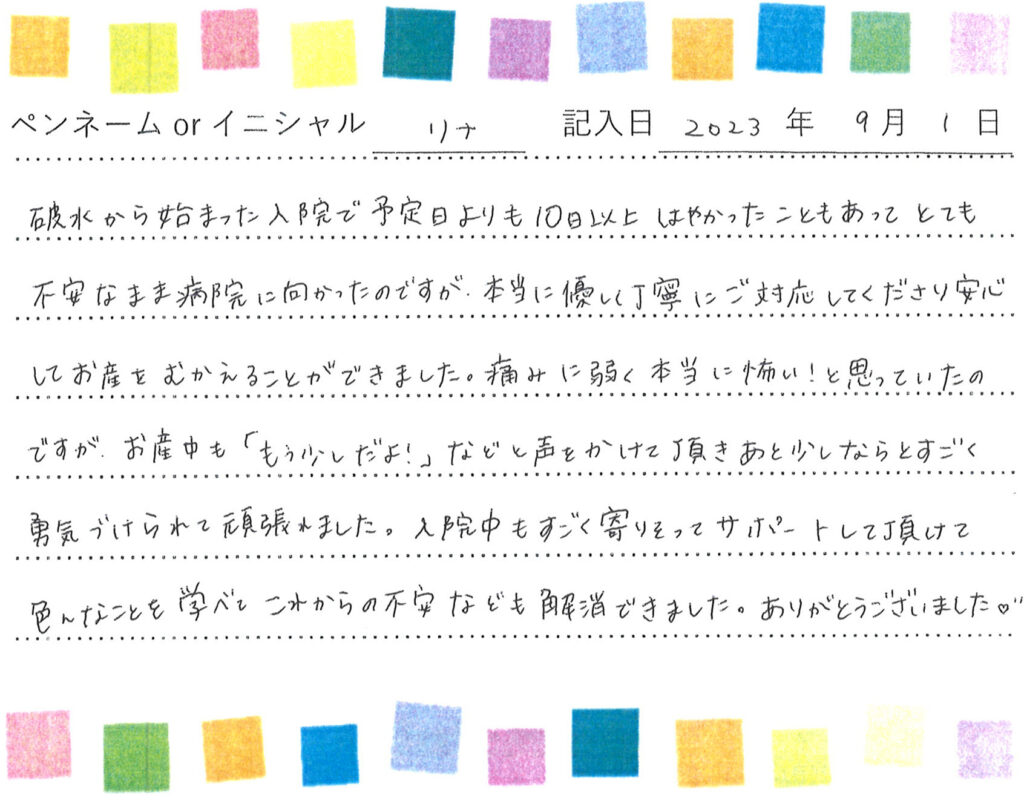 ペンネーム or イニシャル リナ 記入日 2023 年 9 月 1 日
破水から始まった入院で予定日よりも10日以上 はやかったこともあって とても
不安なまま病院に向かったのですが、本当に優しく丁寧にご対応してくださり安心
してお産をむかえることができました。痛みに弱く本当に怖い!と思っていたの
ですが、お産中も「もう少しだよ!」などと声をかけて頂きあと少しならとすごく
勇気づけられて頑張れました。入院中もすごく寄りそってサポートして頂けて
色んなことを学べて これからの不安なども解消できました。ありがとうございました♡